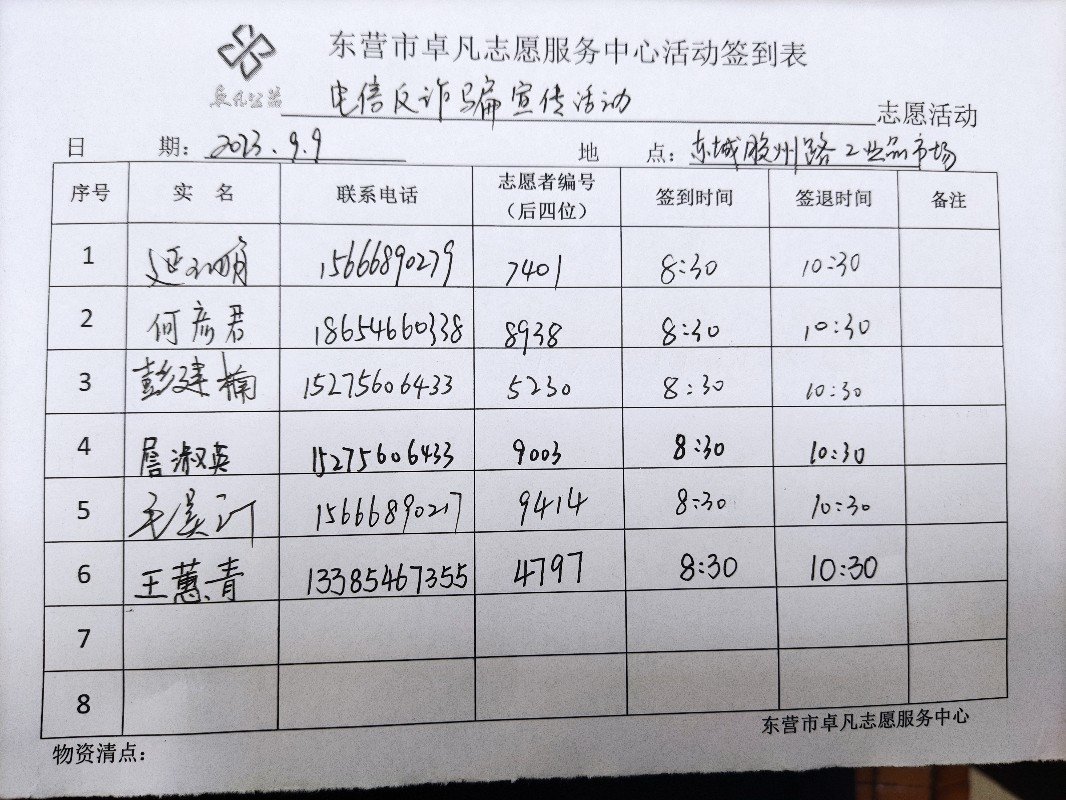 东营市卓凡志愿服务中心活动签到表
卓凡公益
电信反诈骗宣传活动 志愿活动
日 期：2023.9.9 地 点：东城胶州路工业品市场
序号 实 名 联系电话 志愿者编号（后四位） 签到时间 签退时间 备注
1 15666890279 7401 8:30 10:30
2 何彦君 18654660338 8938 8:30 10:30
3 彭建楠 15275606433 5230 8:30 10:30
4 詹淑英 15275606433 9003 8:30 10:30
5 15666890217 9414 8:30 10:30
6 王蕙青 13385467355 4797 8:30 10:30
7
8
东营市卓凡志愿服务中心
物资清点：